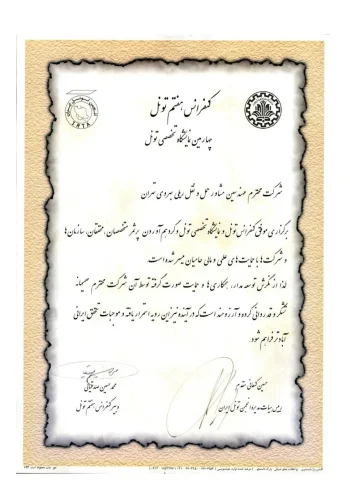 کنفرانس هفتم تونل
چهارمین نمایشگاه تخصصی تونل
شرکت محترم مهندسین مشاور حمل و نقل ریلی بهروی تهران
برگزاری موفق کنفرانس تونل و نمایشگاه تخصصی تونل و گردهم آوردن پرثمر متخصصان، محققان، سازمان‌ها
و شرکت‌ها با حمایت‌های علمی و مالی حامیان میسر شده است.
لذا از نگرش توسعه مدار، همکاری‌ها و حمایت صورت گرفته توسط آن شرکت محترم صمیمانه
تشکر و قدردانی کرده و آرزومند است که در آینده نیز این رویه استمرار یافته و موجبات تحقق ایرانی
آبادتر فراهم شود.
محمدحسین صدقیانی
دبیر کنفرانس هفتم تونل
حسین کنعانی مقدم
رییس هیات مدیره انجمن تونل ایران
IRTA